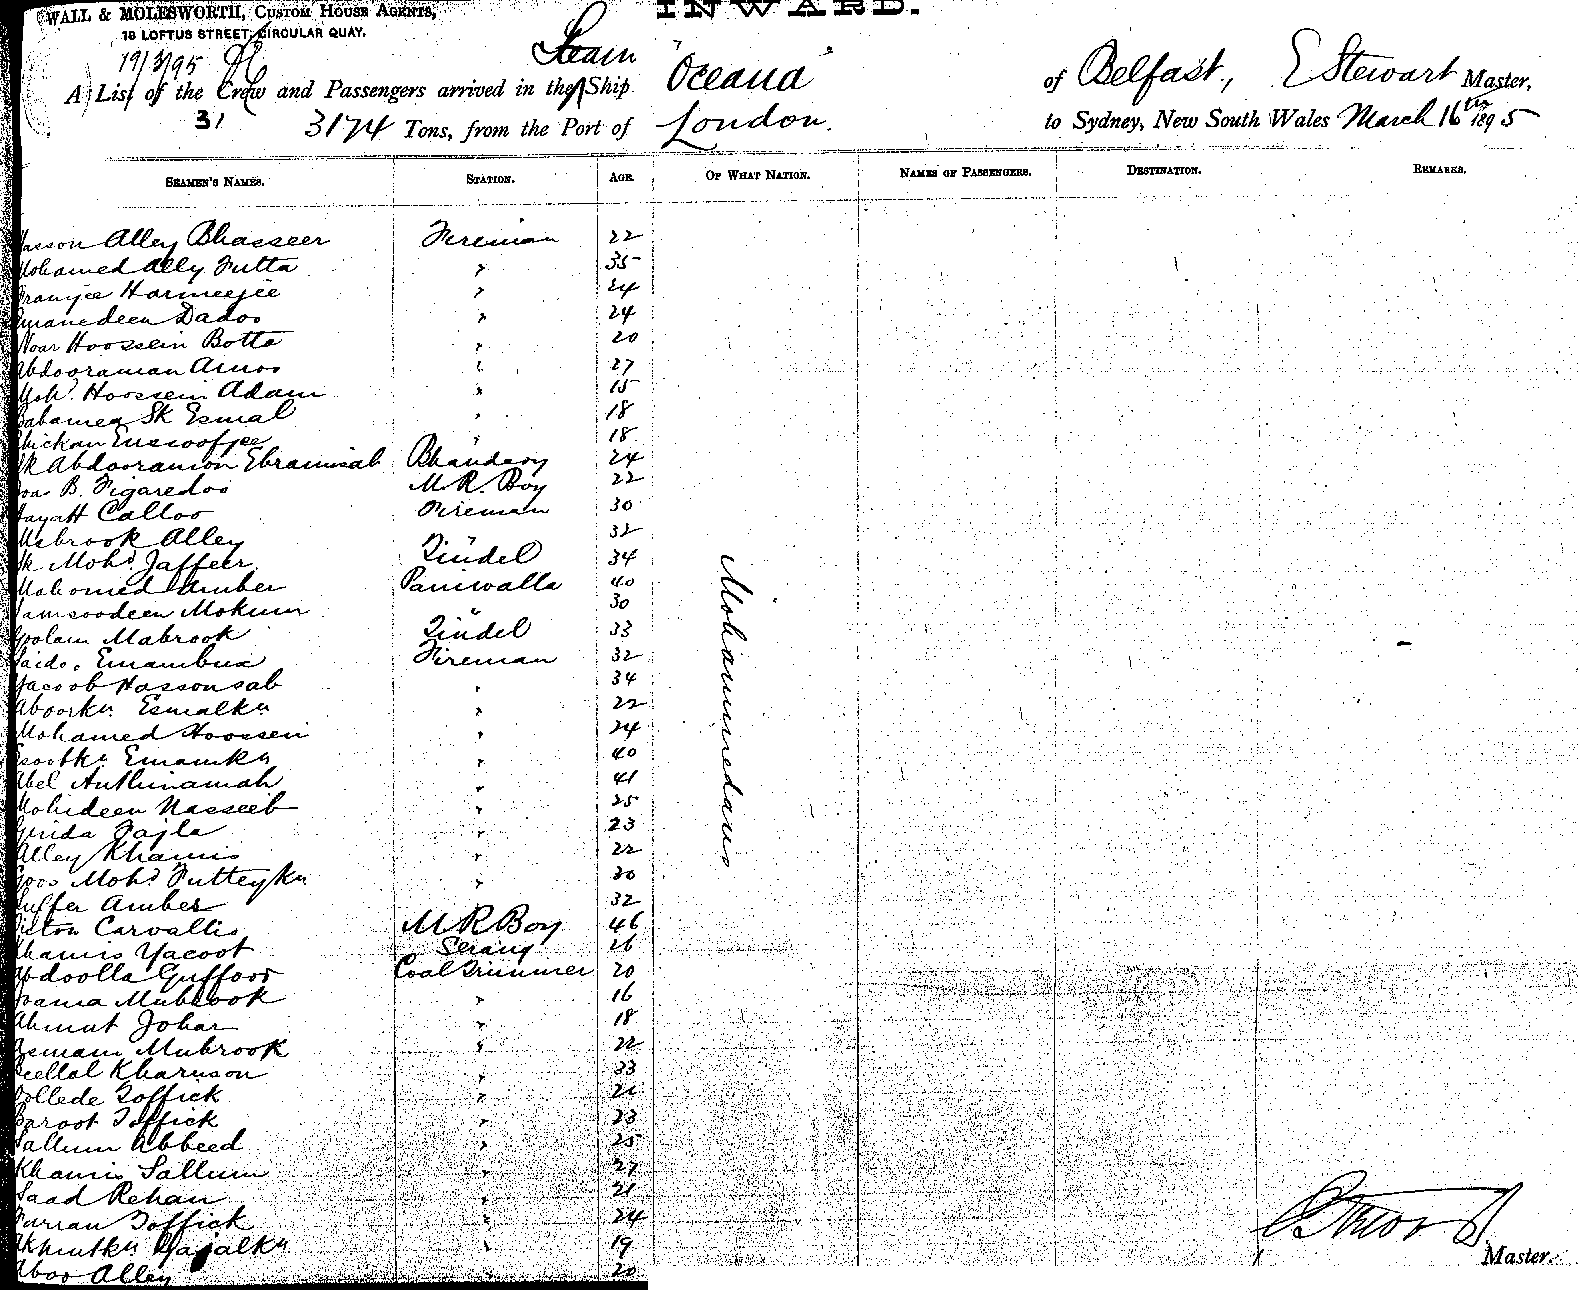 WALL & MOLESWORTH, CUSTOM HOUSE AGENTS,
18 LOFTUS STREET, CIRCULAR QUAY.
INWARD.
19/3/95
A List of the Crew and Passengers arrived in the Steam Ship "Oceana" of Belfast, E Stewart Master,
31 3174 Tons, from the Port of London. to Sydney, New South Wales March 16th 1895
SEAMEN'S NAMES. STATION. AGE. OF WHAT NATION. NAMES OF PASSENGERS. DESTINATION. REMARKS.
Hasson Alley Bhasseer Fireman 22
Mohamed Ally Futta " 35
Framjee Hormeejee " 24
Emamedeen Dadoo " 24
Noor Hoossein Botta " 20
Abdooraman Amoo " 27
Moh'd Hoossein Adam " 15
Sk Esmal " 18
Enscoofjee " 18
Sk Abdooramon Ebramsab Bhandary 24
B. Figaredoo M. R. Boy 22
Hayatt Calloo Fireman 30
Mabrook Alley " 32
Sk Mohd. Jaffeer Tindel 34
Mahomed Amber Paniwalla 40
Jamsoodeen Mokum " 30
Goolam Mabrook Tindel 33
Saido. Emambux Fireman 32
Yacoob Hassonsab " 34
Aboorkn Esmalkn " 22
Mohamed Hoossen " 24
Esootkn Emamkn " 40
Abel Authinamah " 41
Mohideen Nasseeb " 25
Fajla " 23
Alley Khamis " 22
Goos Mohd Futteykn " 30
Juffer Amber " 32
Carvallis M R Boy 46
Khamis Yacoot Serang 26
Abdoolla Guffoor Coal Trimmer 20
Mubrook " 16
Ahmut Johar " 18
Mubrook " 22
Beellal Kharuson " 33
Toffick " 21
Faroot Toffick " 23
Sallum Abbeed " 25
Khamis Sallum " 27
Saad Rehan " 21
Toffick " 24
" 19
Aboo Alley 20
Mohammedans
Master.